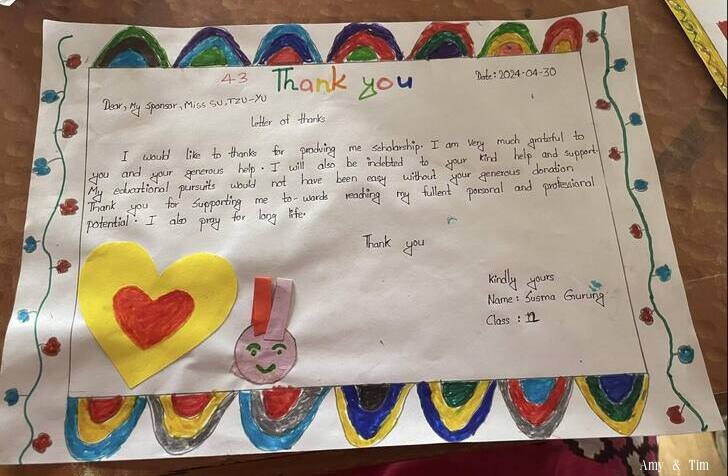 43 Thank you Date: 2024-04-30
Dear, My Sponsor, Miss SU, TZU-YU
Letter of thanks
I would like to thanks for prodving me scholarship. I am very much grateful to
you and your generous help. I will also be indebted to your kind help and support.
My eductional pursuits would not have been easy without your generous donation
Thank you for supporting me to-wards reaching my fullent porsonal and professional
potential. I also pray for long life.
Thank you
Kindly yours
Name: Susma Gurung
Class:
Amy & Tim